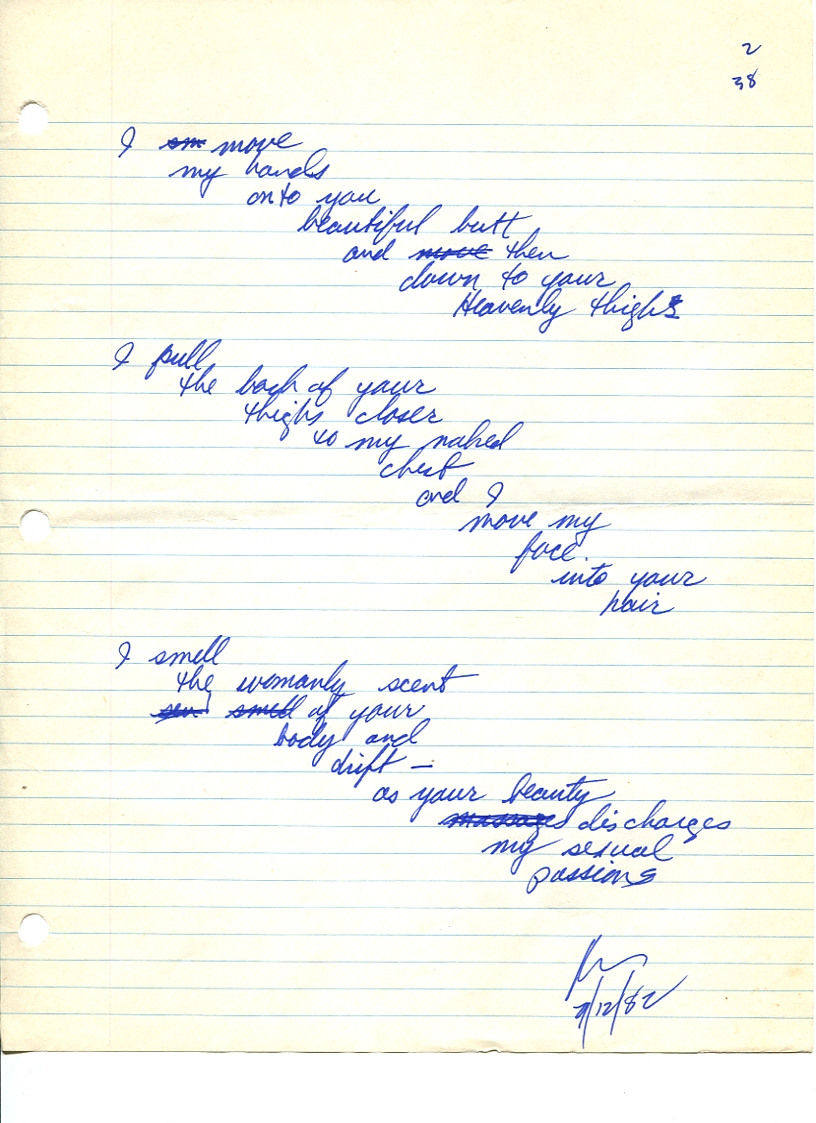 2
38
I sm move
my hands
onto you
beautiful butt
and move then
down to your
Heavenly thighs
I pull
the back of your
thighs closer
to my naked
chest
and I
move my
face
into your
hair
I smell
the womanly scent
sen smell of your
body and
drift —
as your beauty
massages discharges
my sexual
passions
9/12/82